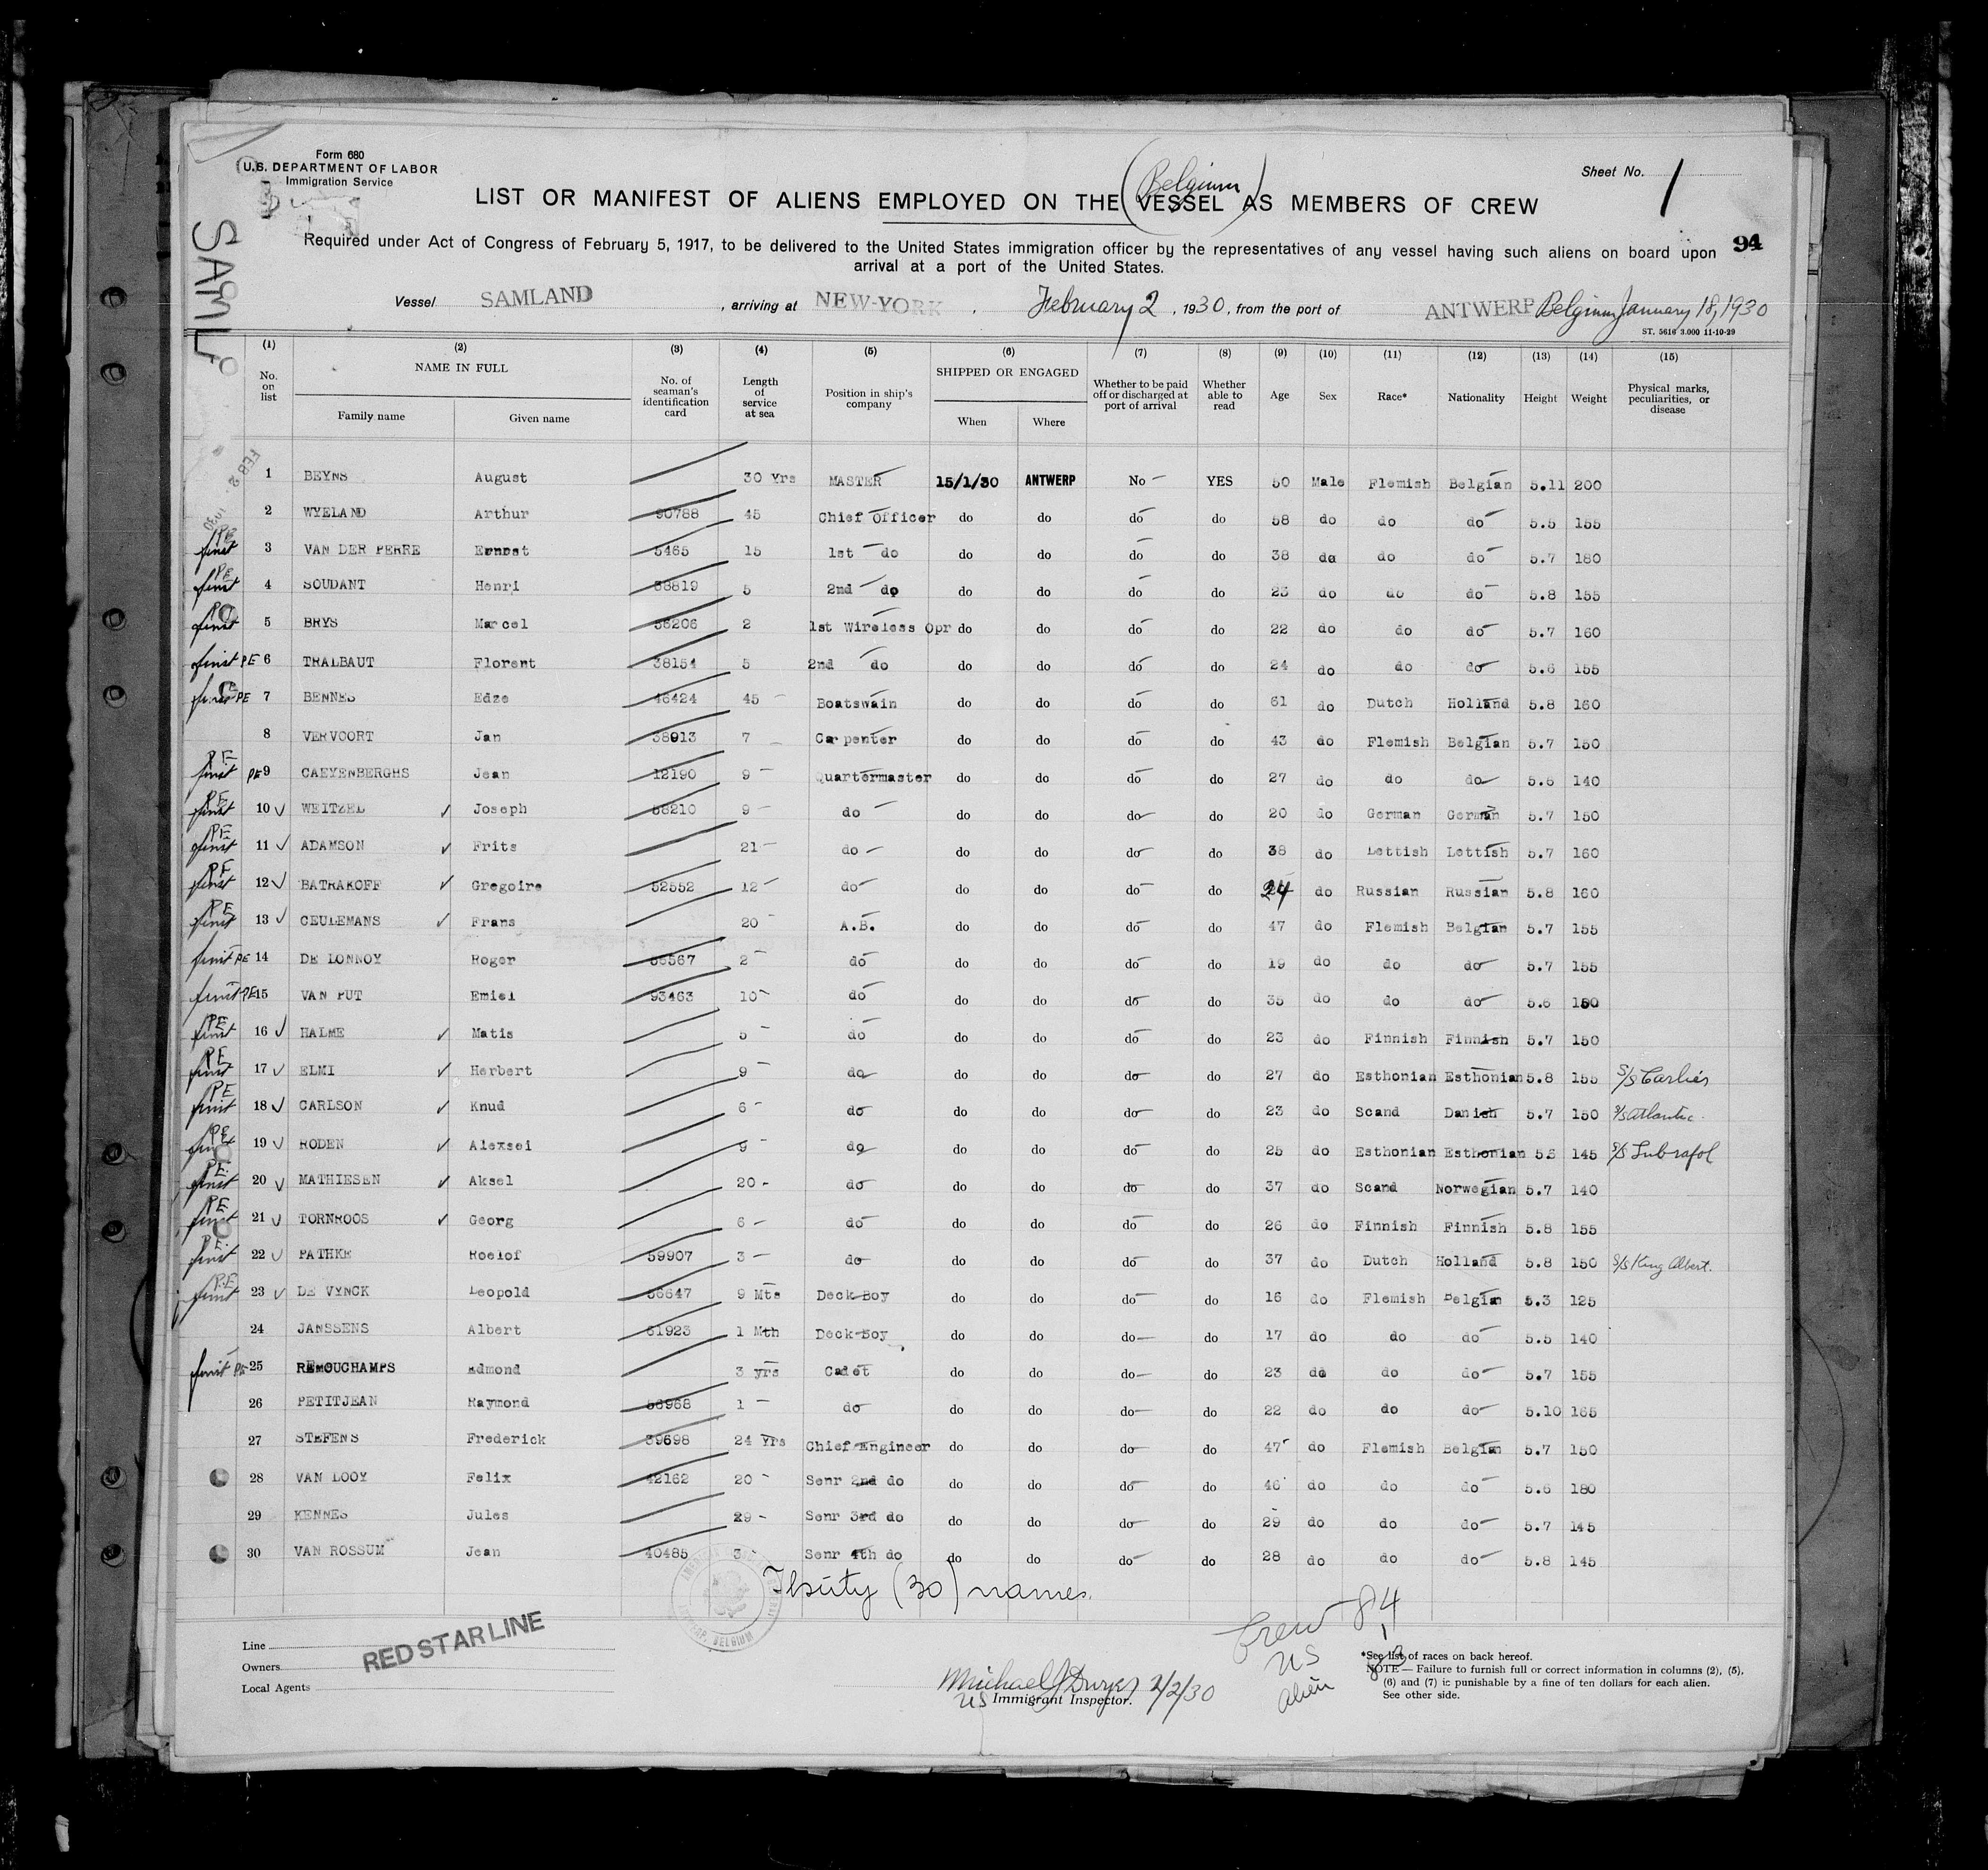 Form 680
U.S. DEPARTMENT OF LABOR
Immigration Service
Sheet No. 1
(Belgium)
LIST OR MANIFEST OF ALIENS EMPLOYED ON THE VESSEL AS MEMBERS OF CREW
Required under Act of Congress of February 5, 1917, to be delivered to the United States immigration officer by the representatives of any vessel having such aliens on board upon
arrival at a port of the United States.
94
SAML
Vessel SAMLAND, arriving at NEW-YORK, February 2, 1930, from the port of ANTWERP Belgium January 18, 1930
ST. 5616 3.000 11-10-29
(1) (2) (3) (4) (5) (6) (7) (8) (9) (10) (11) (12) (13) (14) (15)
No. on list NAME IN FULL Family name Given name No. of seaman's identification card Length of service at sea Position in ship's company SHIPPED OR ENGAGED When Where Whether to be paid off or discharged at port of arrival Whether able to read Age Sex Race* Nationality Height Weight Physical marks, peculiarities, or disease
FEB 2 1930
1 BEYNS August 30 Yrs MASTER 15/1/30 ANTWERP No YES 50 Male Flemish Belgian 5.11 200
2 WYELAND Arthur 90788 45 Chief Officer do do do do 58 do do do 5.5 155
PE finst 3 VAN DER PERRE Ernest 5465 15 1st do do do do do 38 do do do 5.7 180
PE finst 4 SOUDANT Henri 58819 5 2nd do do do do do 23 do do do 5.8 155
finst 5 BRYS Marcel 56206 2 1st Wireless Opr do do do do 22 do do do 5.7 160
finst PE 6 TRALBAUT Florent 38154 5 2nd do do do do do 24 do do do 5.6 155
finst PE 7 BENNES Edze 46424 45 Boatswain do do do do 61 do Dutch Holland 5.8 160
8 VERVOORT Jan 38913 7 Carpenter do do do do 43 do Flemish Belgian 5.7 150
PE finst PE 9 CAEYENBERGHS Jean 12190 9 Quartermaster do do do do 27 do do do 5.6 140
PE finst 10 WEITZEL Joseph 56210 9 do do do do do 20 do German German 5.7 150
PE finst 11 ADAMSON Frits 21 do do do do do 38 do Lettish Lettish 5.7 160
PE finst 12 BATRAKOFF Gregoire 52552 12 do do do do do 24 do Russian Russian 5.8 160
PE finst 13 CEULEMANS Frans 20 A.B. do do do do 47 do Flemish Belgian 5.7 155
finst PE 14 DE LONNOY Roger 56567 2 do do do do do 19 do do do 5.7 155
finst PE 15 VAN PUT Emiel 93463 10 do do do do do 35 do do do 5.6 150
PE finst 16 HALME Matis 5 do do do do do 23 do Finnish Finnish 5.7 150
PE finst 17 ELMI Herbert 9 do do do do do 27 do Esthonian Esthonian 5.8 155 S/S Carlier
PE finst 18 CARLSON Knud 6 do do do do do 23 do Scand Danish 5.7 150 S/S Atlantic
PE finst 19 RODEN Alexsei 9 do do do do do 25 do Esthonian Esthonian 5.5 145 S/S Lubrafol
PE. finst 20 MATHIESEN Aksel 20 do do do do do 37 do Scand Norwegian 5.7 140
PE finst 21 TORNROOS Georg 6 do do do do do 26 do Finnish Finnish 5.8 155
PE. finst 22 PATHKE Roelof 59907 3 do do do do do 37 do Dutch Holland 5.8 150 S/S King Albert.
PE finst 23 DE VYNCK Leopold 56647 9 Mts Deck Boy do do do do 16 do Flemish Belgian 5.3 125
24 JANSSENS Albert 61923 1 Mth Deck Boy do do do do 17 do do do 5.5 140
finst PE 25 REMOUCHAMPS Edmond 3 yrs Cadet do do do do 23 do do do 5.7 155
26 PETITJEAN Raymond 56968 1 do do do do do 22 do do do 5.10 165
27 STEFENS Frederick 39698 24 Yrs Chief Engineer do do do do 47 do Flemish Belgian 5.7 150
28 VAN LOOY Felix 42162 20 Senr 2nd do do do do do 46 do do do 5.6 180
29 KENNES Jules 29 Senr 3rd do do do do do 29 do do do 5.7 145
30 VAN ROSSUM Jean 40485 3 Senr 4th do do do do do 28 do do do 5.8 145
Thirty (30) names.
BELGIUM
Line
Owners
Local Agents
RED STAR LINE
Crew 84
US 1
Alien 83
Michael J Dwyer 2/2/30
US Immigrant Inspector.
*See list of races on back hereof.
NOTE — Failure to furnish full or correct information in columns (2), (5),
(6) and (7) is punishable by a fine of ten dollars for each alien.
See other side.